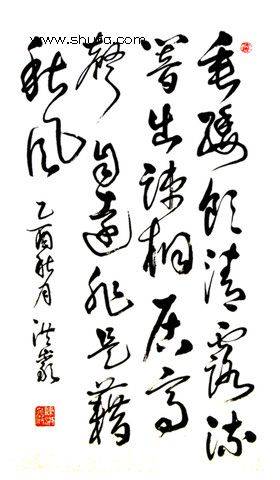 www.shufa.com
垂緌飲清露流
響出疎桐居高
聲自遠非是藉
秋風
乙酉秋月洪